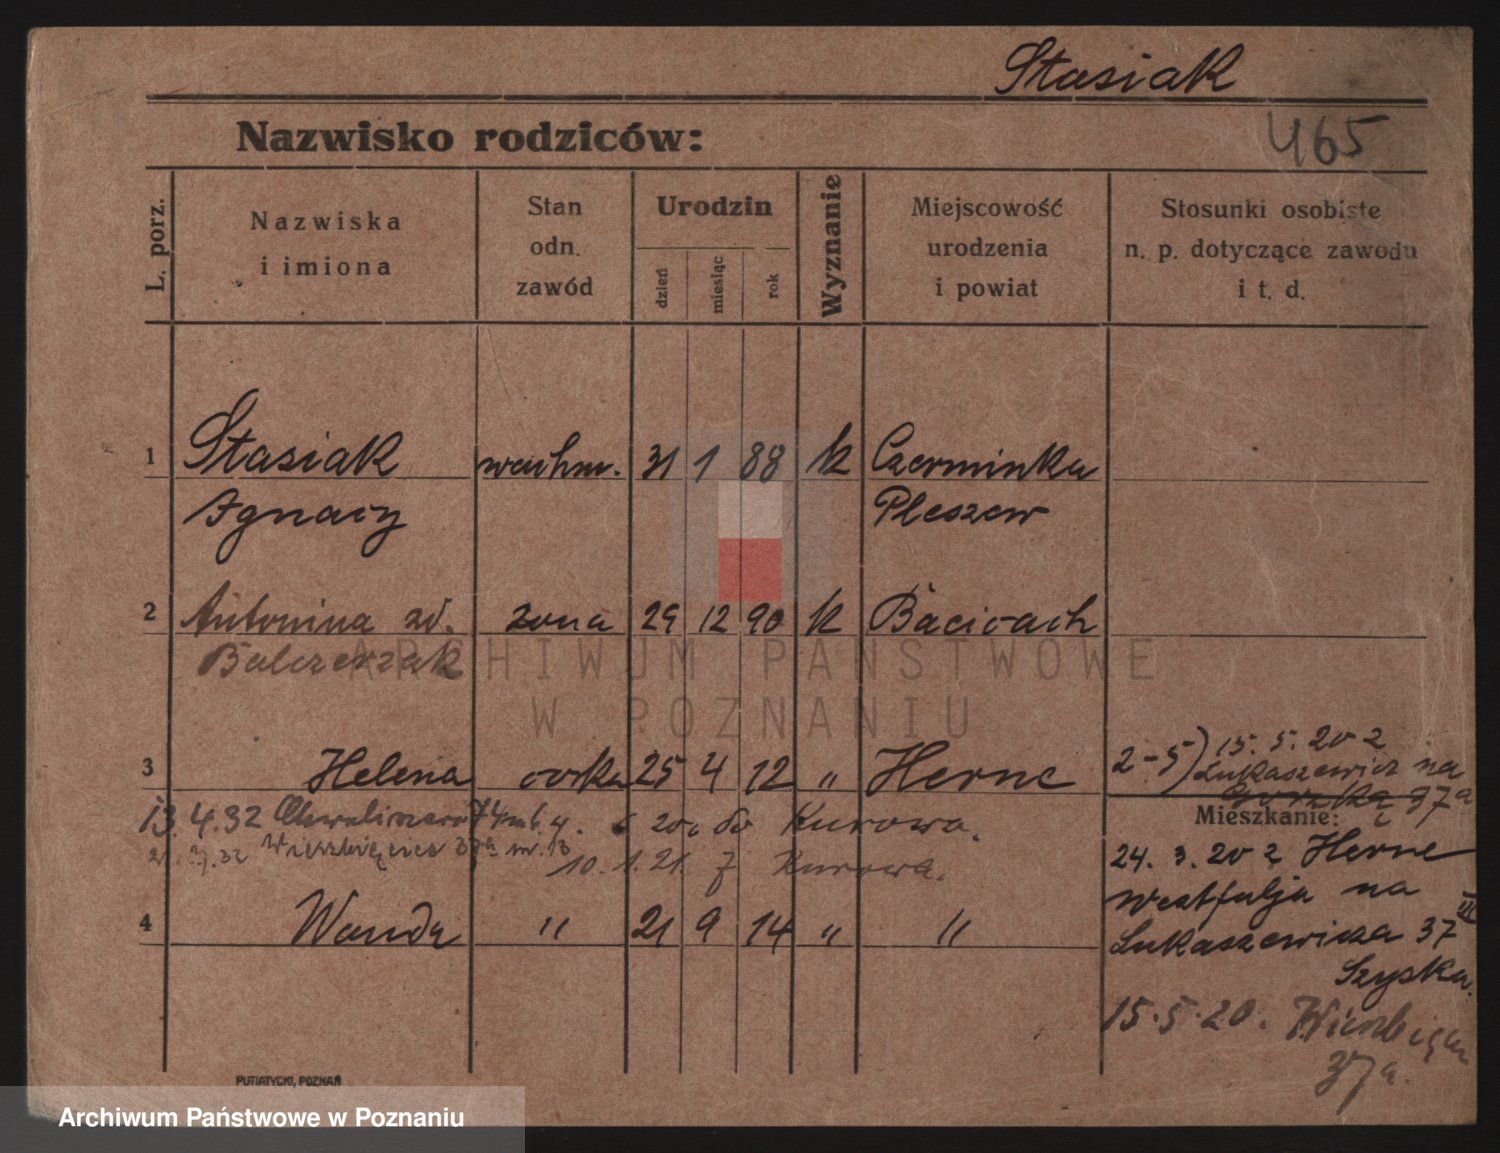 Stasiak
Nazwisko rodziców:
465
L. porz.
Nazwiska
i imiona
Stan
odn.
zawód
Urodzin
dzień
miesiąc
rok
Wyznanie
Miejscowość
urodzenia
i powiat
Stosunki osobiste
n. p. dotyczące zawodu
i t. d.
1 Stasiak wachm. 31 1 88 k Czerminka
Ignacy Pleszew
2 Antonina żona 29 12 90 k
Balczerzak
ARCHIWUM PAŃSTWOWE
W POZNANIU
3 Helena córka 25 4 12 " Herne
2-5) 15. 5. 20 z
Łukaszewicz na
37a
Mieszkanie:
13. 4. 32 74 m 6. 20. do Kurowa.
32 37a m. 13
10. 1. 21. z Kurowa.
24. 3. 20 z Herne
Westfalja na
4 Wanda " 21 9 14 " "
Łukaszewicza 37 III
Szyska.
15. 5. 20.
37a.
PUTIATYCKI, POZNAŃ
Archiwum Państwowe w Poznaniu